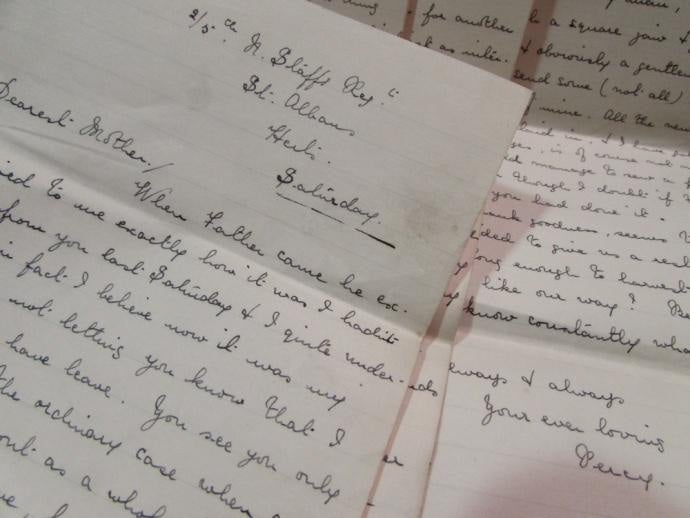 2/5th N. Staffs Reg.
St. Albans
Herts.
Saturday.
Dearest Mother,
When Father came he ex-
to me exactly how it was I hadn't
from you last Saturday & I quite under-
in fact I believe now it was my
not letting you know that I
have leave. You see you only
the ordinary case when
out as a whole
for another & a square jaw &
& obviously a gentle
send some (not all)
mine. All the new
is of course not
manage to
though I doubt if
you had done it.
goodness, seems
to give us a
long enough to harvest
like our way?
know constantly
always & always
Your ever loving
Percy.